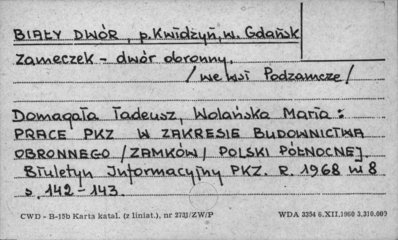 BIAŁY DWÓR, p. Kwidzyń, w. Gdańsk
Zameczek - dwór obronny,
/we wsi Podzamcze/
Domagała Tadeusz, Wolańska Maria:
PRACE PKZ W ZAKRESIE BUDOWNICTWA
OBRONNEGO /ZAMKÓW/ POLSKI PÓŁNOCNEJ.
Biuletyn Informacyjny PKZ. R. 1968 nr 8
s. 142-143.
CWD - B-15b Karta katal. (z liniat.), nr 2721/ZW/P WDA 3354 6.XII.1960 3.310.000